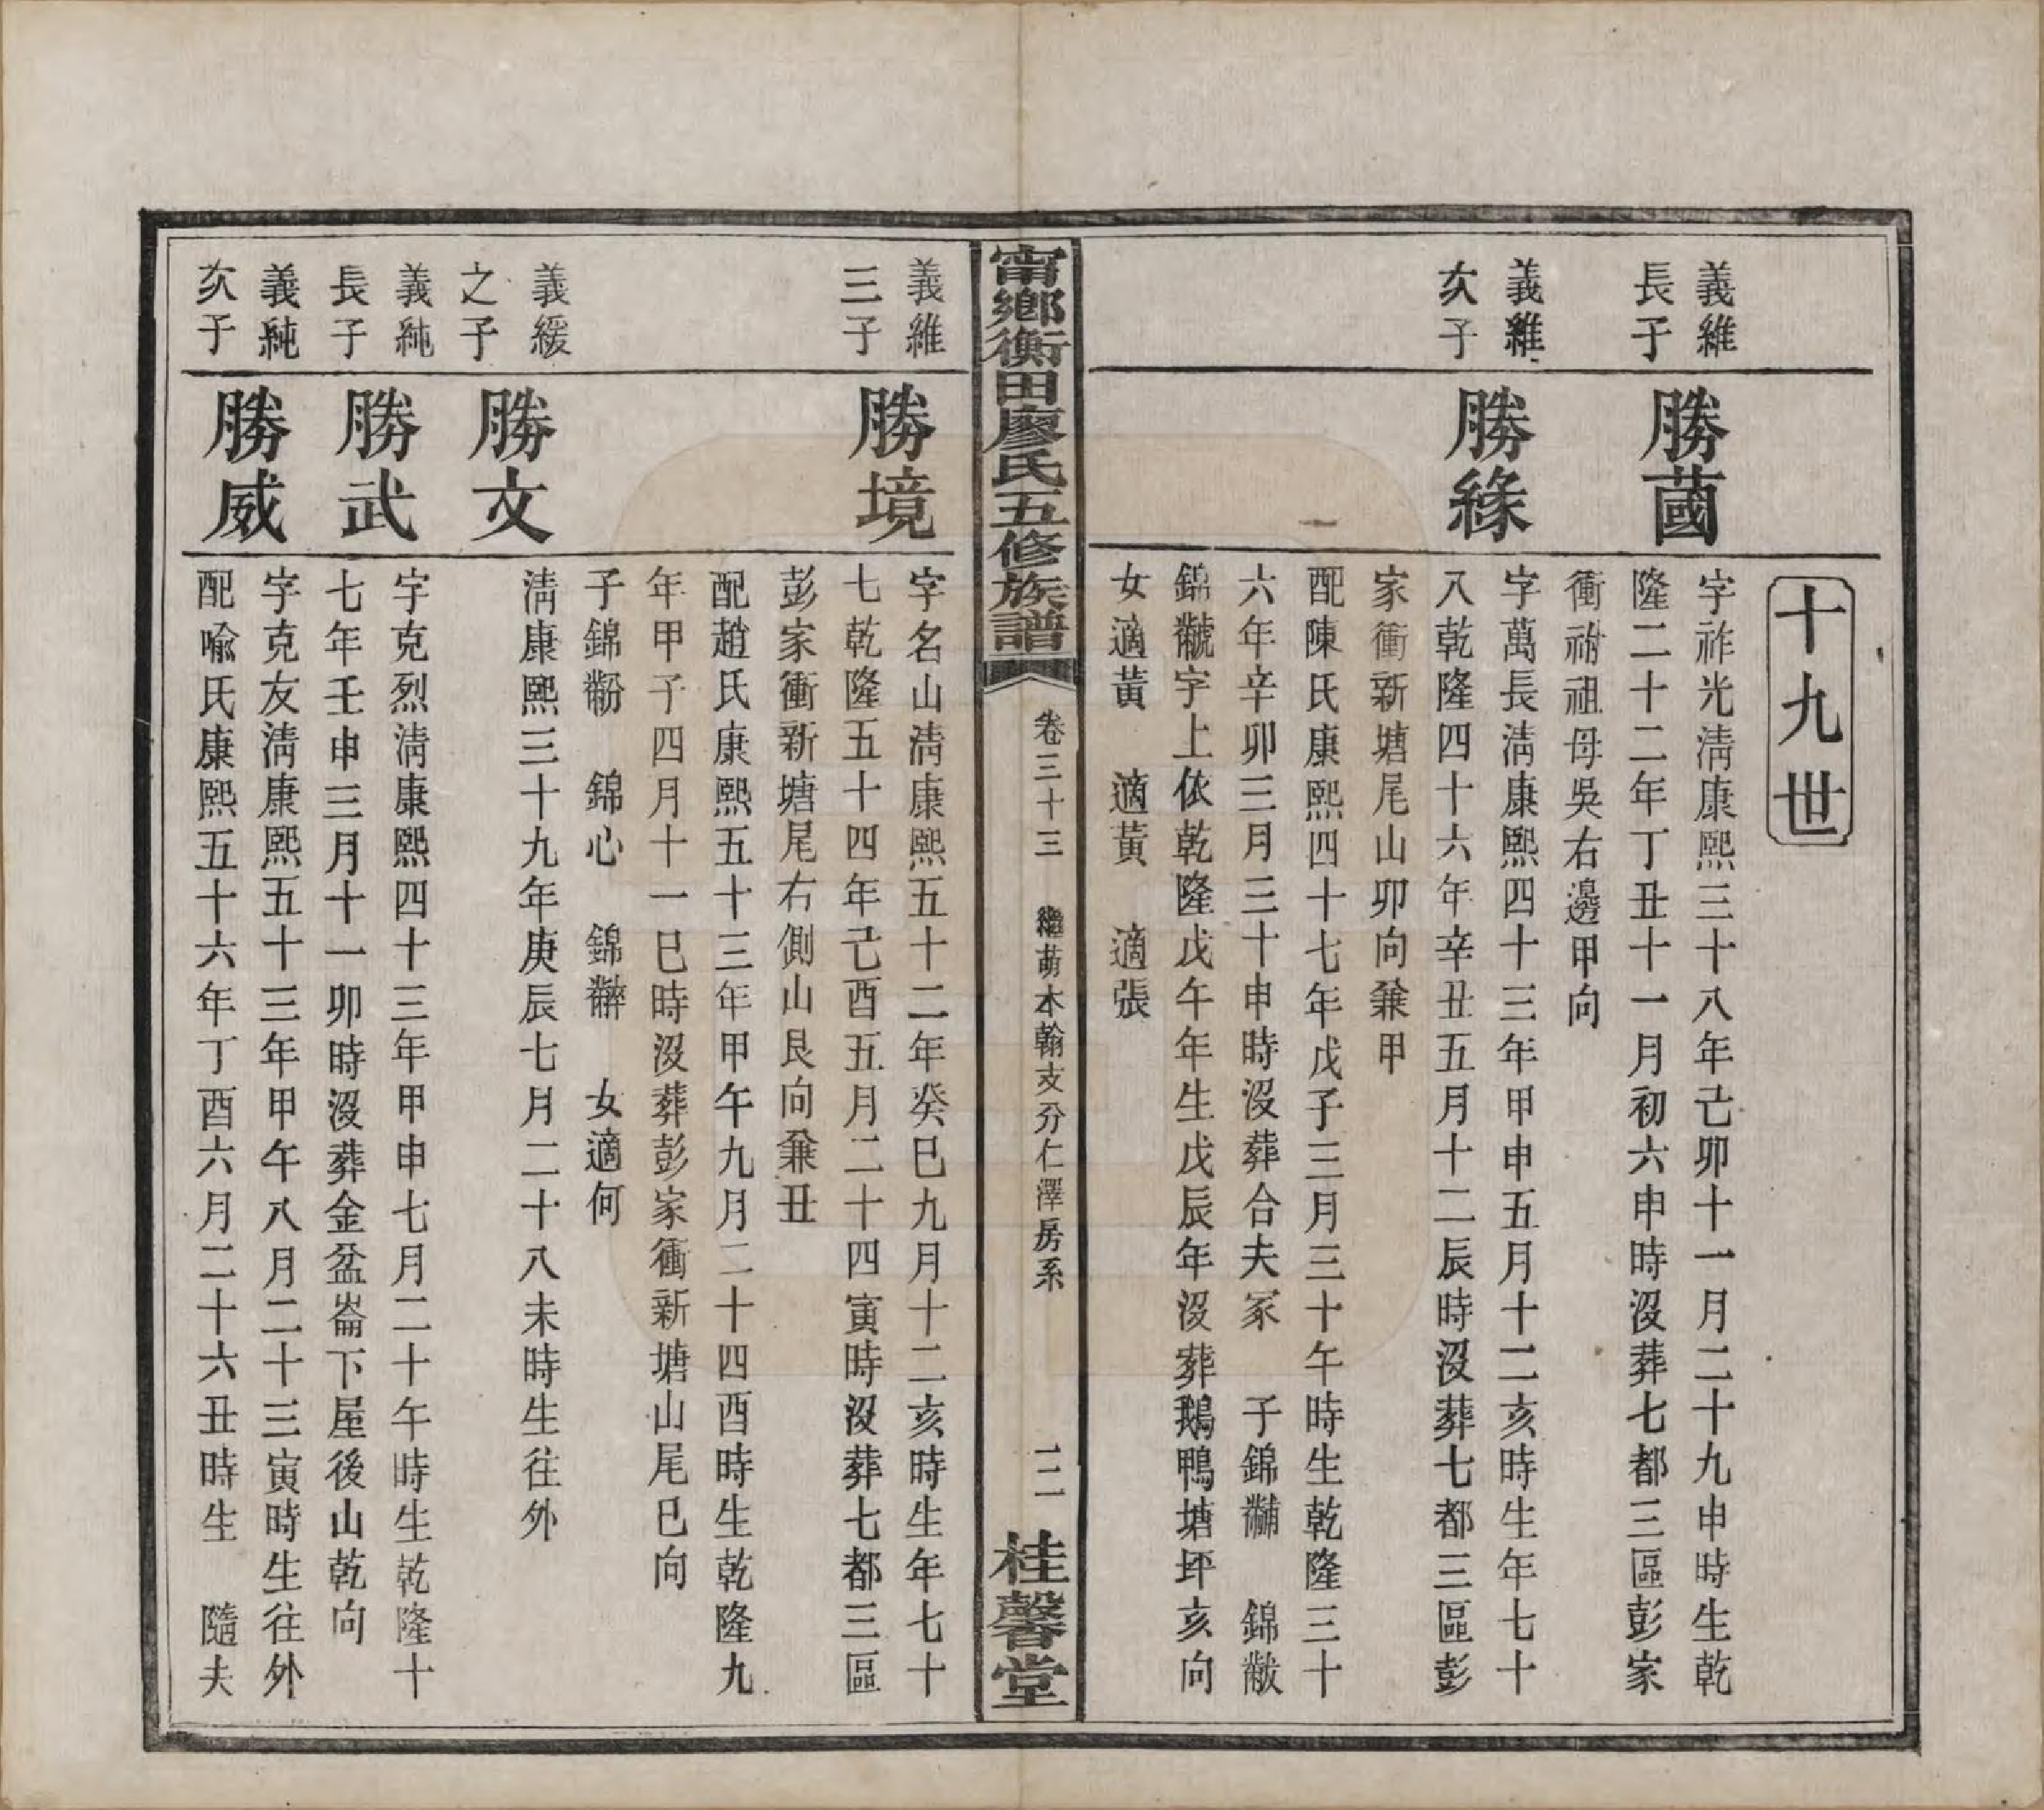 十九世
義維
長子
勝蔨
字祚光淸康熙三十八年己卯十一月二十九申時生乾
隆二十二年丁丑十一月初六申時沒葬七都三區彭家
衝祔祖母吳右邊甲向
義維
次子
勝緣
字萬長淸康熙四十三年甲申五月十二亥時生年七十
八乾隆四十六年辛丑五月十二辰時沒葬七都三區彭
家衝新塘尾山卯向兼甲
配陳氏康熙四十七年戊子三月三十午時生乾隆三十
六年辛卯三月三十申時沒葬合夫冢 子錦黼 錦黻
錦字上依乾隆戊午年生戊辰年沒葬鵝鴨塘坪亥向
女適黃 適黃 適張
甯鄉衡田廖氏五修族譜
卷三十三 繼萌木翰支分仁澤房系
二
桂馨堂
義維
三子
勝境
字名山淸康熙五十二年癸巳九月十二亥時生年七十
七乾隆五十四年己酉五月二十四寅時沒葬七都三區
彭家衝新塘尾右側山艮向兼丑
配趙氏康熙五十三年甲午九月二十四酉時生乾隆九
年甲子四月十一巳時沒葬彭家衝新塘山尾巳向
子錦黺 錦心 錦 女適何
義緩
之子
勝文
淸康熙三十九年庚辰七月二十八未時生往外
義純
長子
勝武
字克烈淸康熙四十三年甲申七月二十午時生乾隆十
七年壬申三月十一卯時沒葬金盆崙下屋後山乾向
義純
次子
勝威
字克友淸康熙五十三年甲午八月二十三寅時生往外
配喩氏康熙五十六年丁酉六月二十六丑時生 隨夫